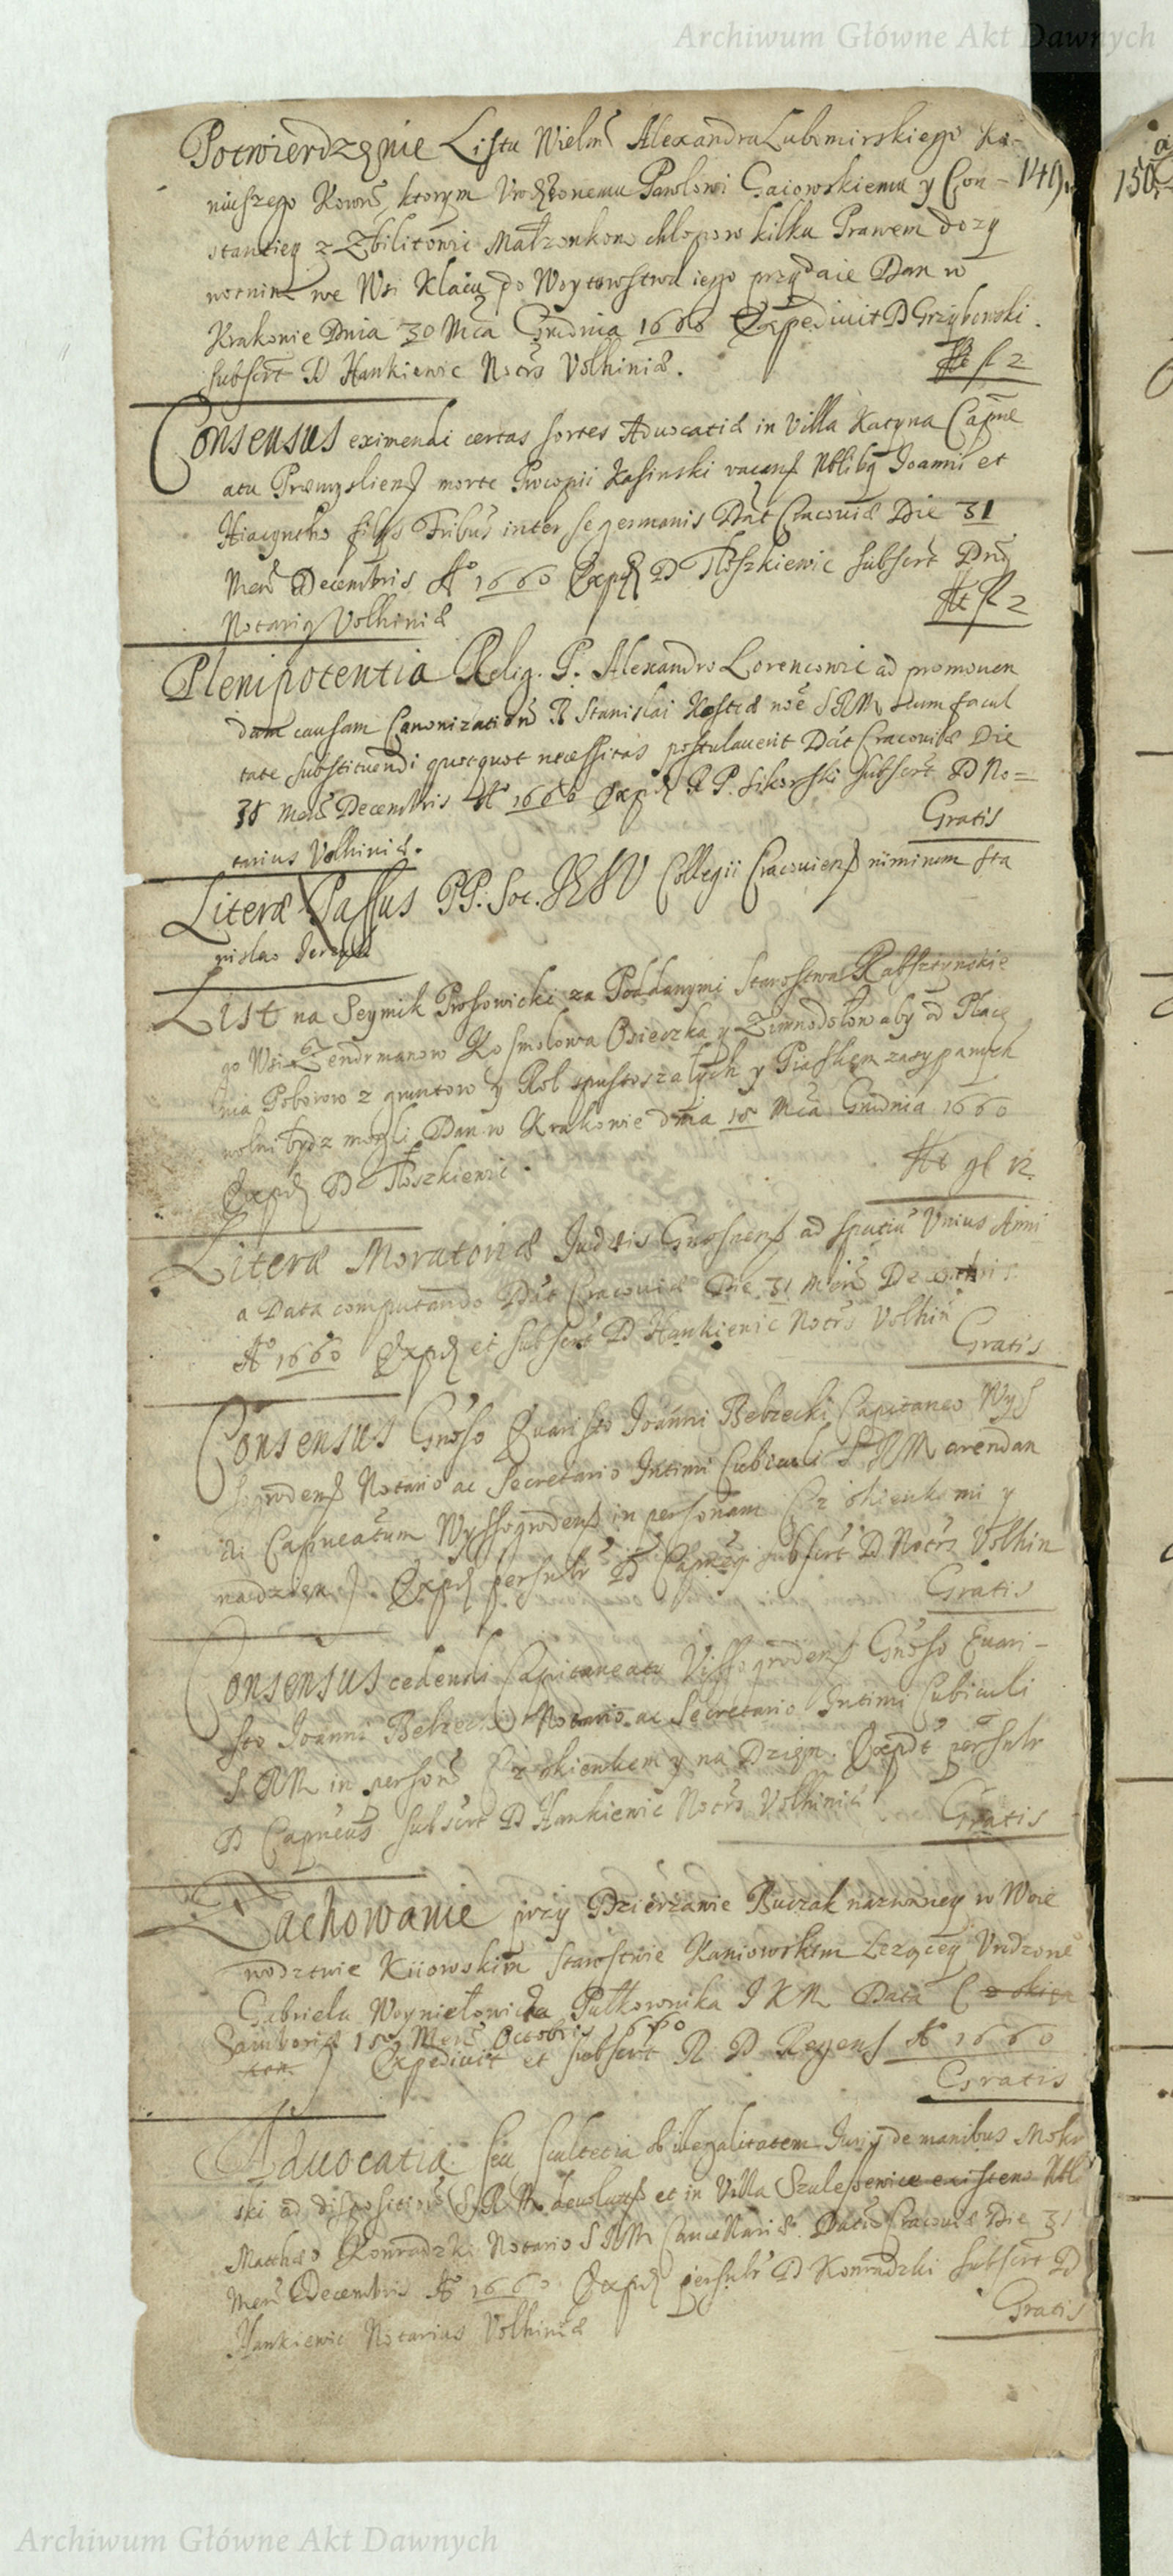 Archiwum Główne Akt Dawnych
Potwierdzęnie Listu Wielm Alexandra Lubomirskiego Ko-
niuszego Koron, ktorym Vrodzonemu Pawlowi Gaiowskiemu y Con- 149.
stantiey z Zbilitowic Małzonkom chlopow kilku Prawem dozy
wotnim we Wsi Klaiu do Woytowstwa iego przydaie Dan w
Krakowie Dnia 30 Mca Grudnia 1660 Expediuit D Grzybowski.
subscrt D Hankiewic Notrs Volhiniæ.
fl 2
Consensus eximendi certas sortes Aduocatiæ in Villa Katyna Capne
atu Præmyslien morte Procopii Kasinski vacan Nblibq Joanni et
Hiacyntho filys Fribus inter se germanis Dat Cracouiæ Die 31
Men Decembris Ao 1660 Exp D Tloszkiewic subscrt Dnq
Notariq Volhiniæ
fl 2
Plenipotentia Relig. P. Alexandro Lorencowic ad promouen
dam causam Canonization B Stanislai Kostcæ noe SRM cum facul
tate substituendi quotquot necessitas postulauerit Dat Cracouiæ Die
31 Mens Decembris Ao 1660 Exp R P. Sikorski subscrt D No=
tarius Volhiniæ.
Gratis
Literæ Passus PP. Soc. JESV Collegii Cracouien nimirum Sta
nislao
List na Seymik Proszowicki za Poddanymi Starostwa Rabsztynskie
go Wsi Zendrmanow Kosmolowa Osieczka y Zimnodołow aby od Płace
nia Poborow z gruntow y Rol spustoszałych y Piaskem zasypanych
wolni bydz mogli Dan w Krakowie dnia 18 Mca Grudnia 1660
Exp D Tloszkiewic.
gl 12
Literæ Moratoriæ Gnosnen ad spatiu Vnius Anni
a Data computando Dat Cracouiæ Die 31 Men Decembris
Ao 1660 Exp et subscrt D Hankiewic Notrs Volhin
Gratis
Consensus Gnoso Euaristo Joanni Bełzecki Capitaneo Wys
sogroden Notario ac Secretario Intimi Cubiculi SRM arendan
di Capneatum Wyssogroden in personam (z okienkami y
nadzien) Exp persnlr D Capney subscrt D Notrs Volhin
Gratis
Consensus cedendi Capitaneatu Vissogroden Gnoso Euari-
sto Joanni Bełzecki Notario ac Secretario Intimi Cubiculi
SRM in person (z okienkem y na Dzien. Expdt persnlr
D Capneus subscrt D Hankiewic Notrs Volhiniæ
Gratis
Zachowanie przy Dzierżawie Buczak nazwaney w Woie
wodztwie Kiiowskim Starostwie Kaniowskim Lezącey Vrdzone
Gabriela Woyniełowicza Pułkownika J K M Data (z okien
Samboriæ 18 Men Octobris 1660
kem) Expediuit et subscrt R D Regens Ao 1660
Gratis
Aduocatia seu Scultetia ob illegalitatem Juris de manibus Mokr
ski ad disposition S R M deuolut et in Villa existens Nbli
Matthæo Konradzki Notario S R M Cancellariæ. Datu Cracouiæ Die 31
Men Decembris Ao 1660 Exp persnlr D Konradzki subscrt D
Hankiewic Notarius Volhiniæ
Gratis
150
Archiwum Główne Akt Dawnych